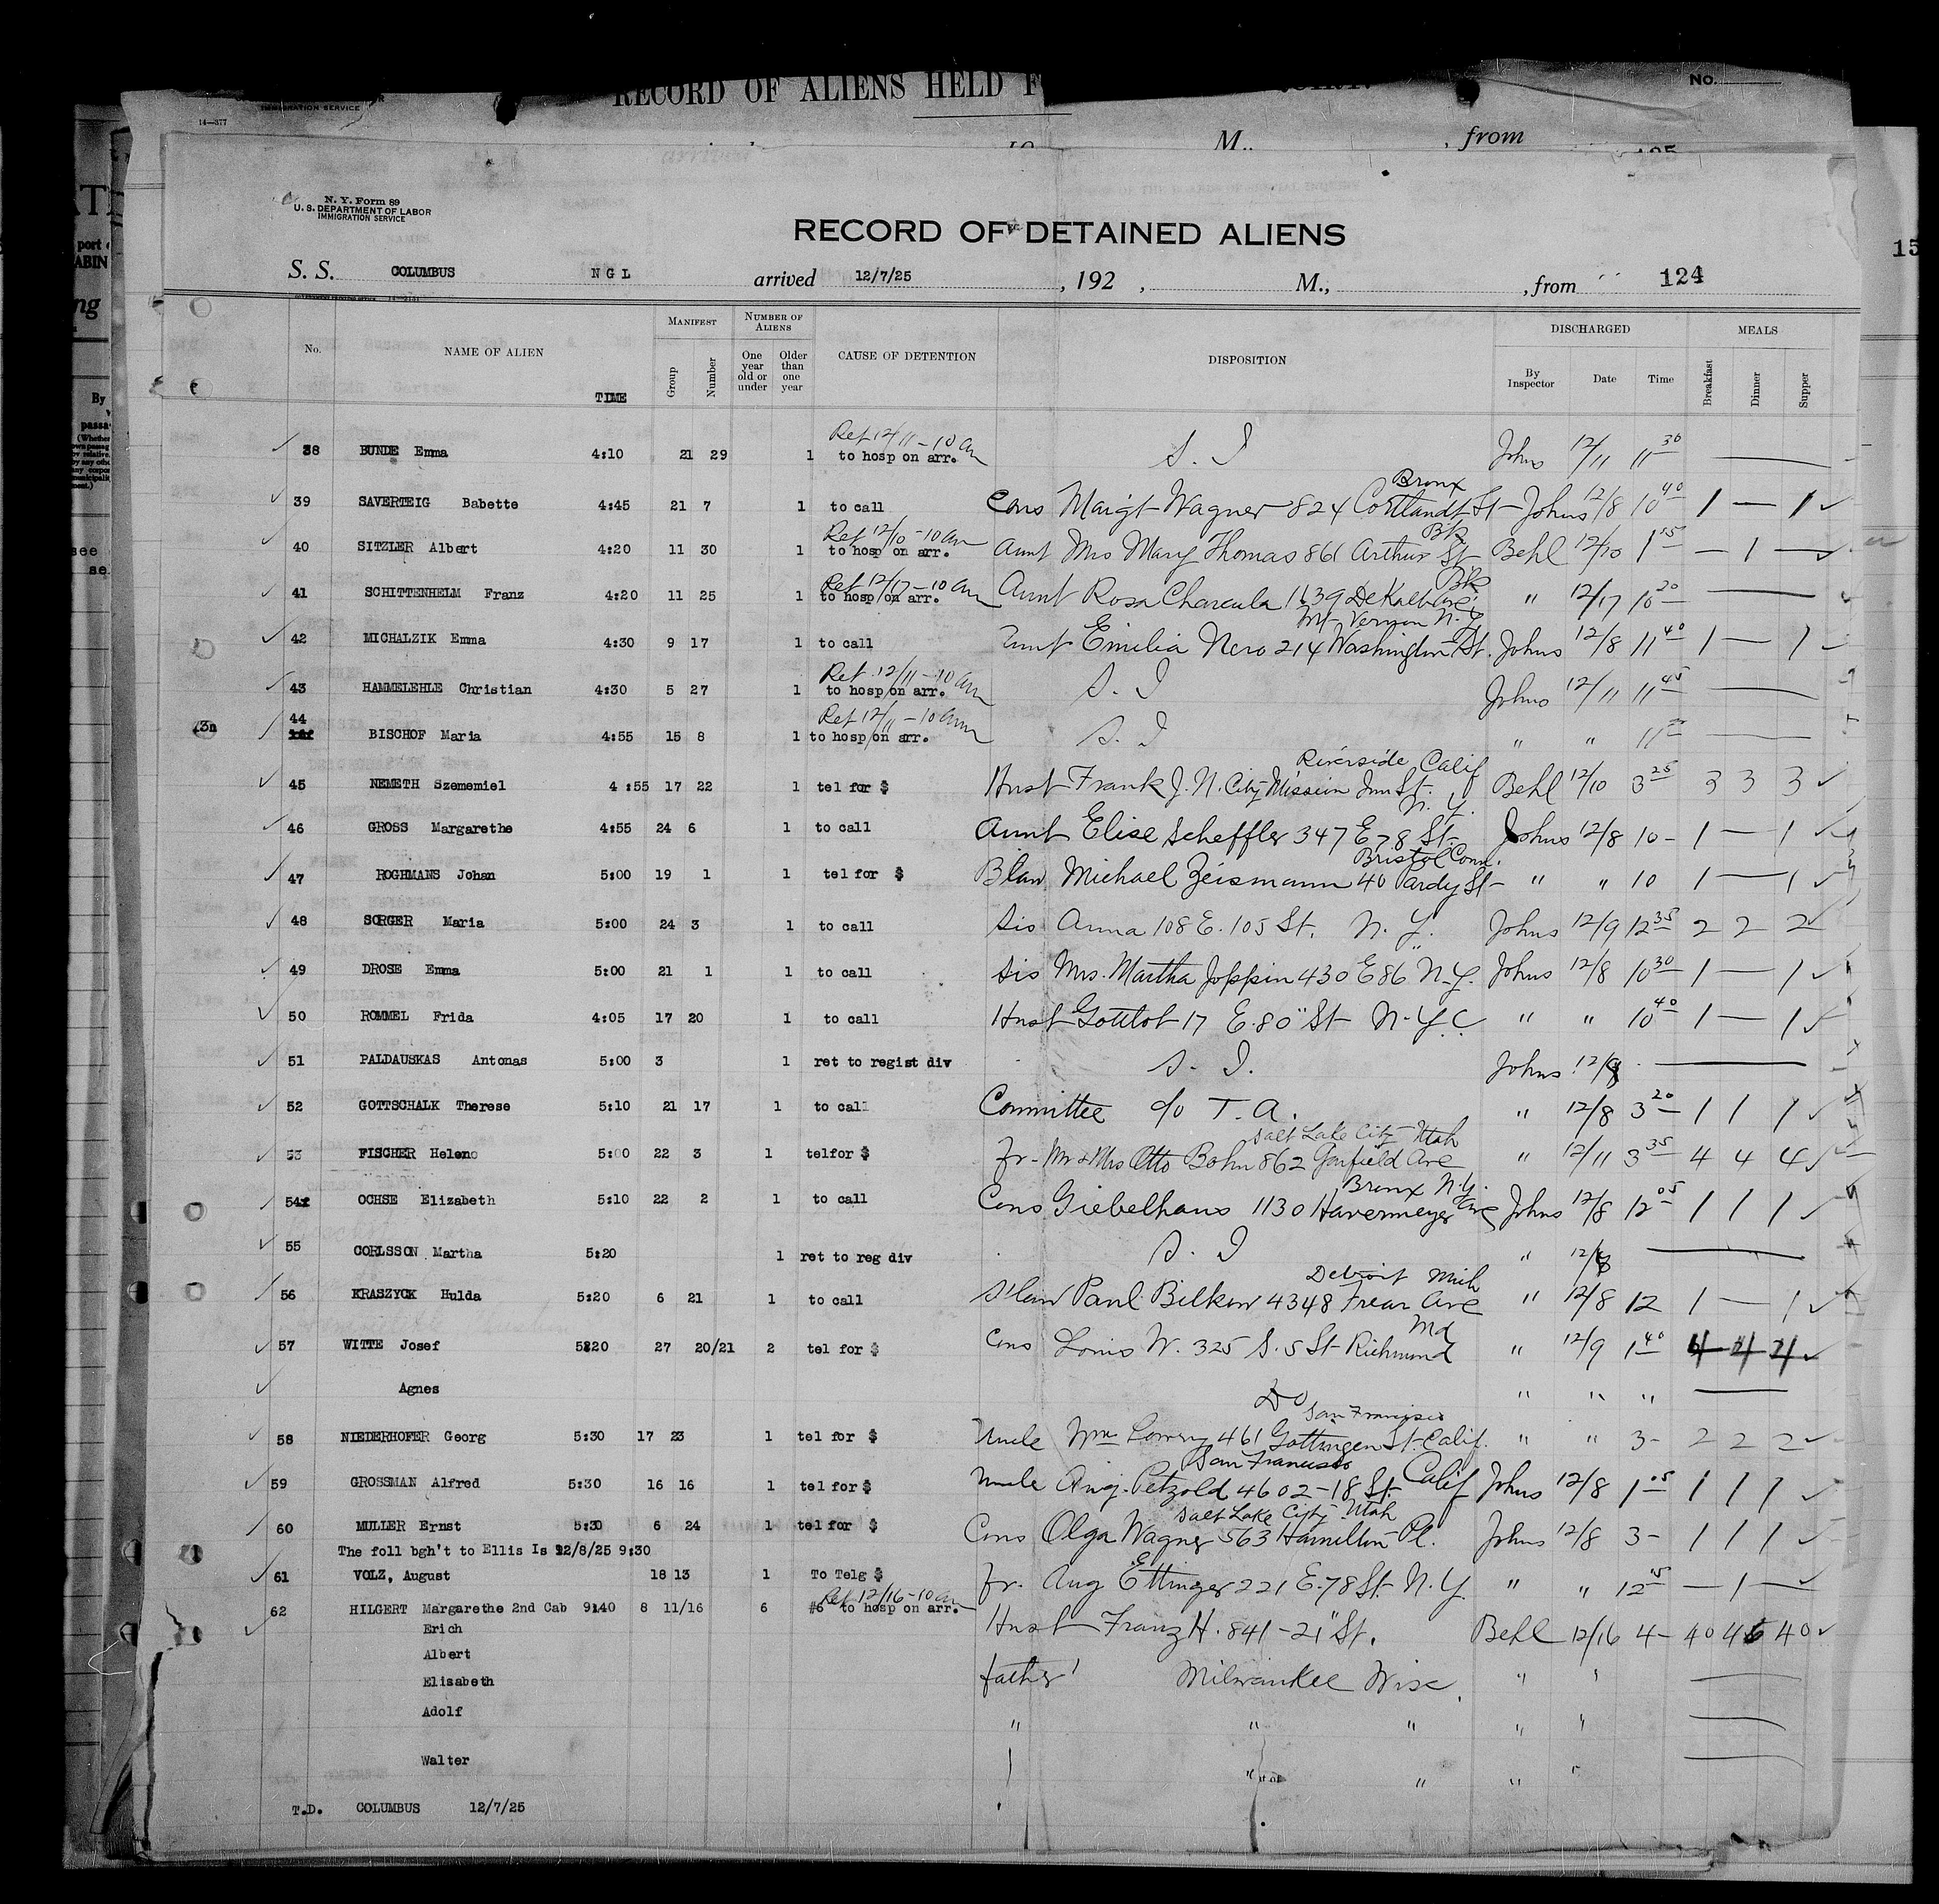 RECORD OF ALIENS HELD F
No.
IMMIGRATION SERVICE
14—377
M.. , from
N. Y. Form 89
U. S. DEPARTMENT OF LABOR
IMMIGRATION SERVICE
RECORD OF DETAINED ALIENS
S. S. COLUMBUS N G L arrived 12/7/25 , 192 , M., , from 124
No. NAME OF ALIEN TIME MANIFEST Group Number NUMBER OF ALIENS One year old or under Older than one year CAUSE OF DETENTION DISPOSITION DISCHARGED By Inspector Date Time MEALS Breakfast Dinner Supper
Ret 12/11 - 10 am
38 BUNDE Emma 4:10 21 29 1 to hosp on arr. S. I Johns 12/11 11 30
Bronx
39 SAVERTEIG Babette 4:45 21 7 1 to call Cons Margt Wagner 824 Cortlandt St - Johns 12/8 10 40 1 — 1
Ret 12/10 - 10 am Bk
40 SITZLER Albert 4:20 11 30 1 to hosp on arr. Aunt Mrs Mary Thomas 861 Arthur St Behl 12/10 1 55 — 1 —
Ret 12/17 - 10 am Bk
41 SCHITTENHELM Franz 4:20 11 25 1 to hosp on arr. Aunt Rosa Charcula 1139 DeKalb Ave " 12/17 10 20
Mt Vernon N.Y.
42 MICHALZIK Emma 4:30 9 17 1 to call Aunt Emilia Nero 214 Washington St. Johns 12/8 11 40 1 — 1
Ret 12/11 - 10 am
43 HAMMELEHLE Christian 4:30 5 27 1 to hosp on arr. S. I Johns 12/11 11 45
Ret 12/11 - 10 am
44 BISCHOF Maria 4:55 15 8 1 to hosp on arr. S. I " " 11
Riverside Calif
45 NEMETH Szememiel 4:55 17 22 1 tel for $ Husb Frank J. N. City Mission Inn St. Behl 12/10 3 25 3 3 3
N. Y.
46 GROSS Margarethe 4:55 24 6 1 to call Aunt Elise Scheffler 347 E 78 St. Johns 12/8 10 - 1 — 1
Bristol Conn.
47 ROGHMANS Johan 5:00 19 1 1 tel for $ Blaw Michael Zeismann 40 Pardy St - " " 10 1 — 1
48 SORGER Maria 5:00 24 3 1 to call Sis Anna 108 E. 105 St. N. Y. Johns 12/9 12 35 2 2 2
49 DROSE Emma 5:00 21 1 1 to call Sis Mrs. Martha Joppin 430 E 86 N.Y. Johns 12/8 10 30 1 — 1
50 ROMMEL Frida 4:05 17 20 1 to call Husb Gottlob 17 E. 80" St N. Y. C " " 10 40 1 — 1
51 PALDAUSKAS Antonas 5:00 3 1 ret to regist div S. I. Johns 12/8
52 GOTTSCHALK Therese 5:10 21 17 1 to call Committee c/o T. A. " 12/8 3 20 1 1 1
Salt Lake City Utah
53 FISCHER Helene 5:00 22 3 1 telfor $ Fr - Mr & Mrs Otto Bohn 862 Garfield Ave " 12/11 3 35 4 4 4
Bronx N.Y.
54 OCHSE Elizabeth 5:10 22 2 1 to call Cons Giebelhaus 1130 Havermeyer Ave Johns 12/8 12 05 1 1 1
55 CORLSSON Martha 5:20 1 ret to reg div S. I " 12/8
Detroit Mich
56 KRASZYCK Hulda 5:20 6 21 1 to call S'law Paul Bilkow 4348 Frear Ave " 12/8 12 1 — 1
Md
57 WITTE Josef 5:20 27 20/21 2 tel for $ Cons Louis W. 325 S. 5 St Richmond " 12/9 1 40 4 4 4
Agnes Do " " "
San Francisco
58 NIEDERHOFER Georg 5:30 17 23 1 tel for $ Uncle Wm Lowry 461 Gottingen St. Calif. " " 3 - 2 2 2
San Francisco
59 GROSSMAN Alfred 5:30 16 16 1 tel for $ Uncle Aug. Petzold 4602 - 18 St. Calif Johns 12/8 1 05 1 1 1
Salt Lake City Utah
60 MULLER Ernst 5:30 6 24 1 tel for $ Cons Olga Wagner 563 Hamilton Pl. Johns 12/8 3 - 1 1 1
The foll bgh't to Ellis Is 12/8/25 9:30
61 VOLZ, August 18 13 1 To Telg $ Fr. Aug Ettinger 221 E. 78 St. N. Y. " " 12 15 — 1 —
Ret 12/16 - 10 am
62 HILGERT Margarethe 2nd Cab 9:40 8 11/16 6 #6 to hosp on arr. Husb Franz H. 841 - 21" St. Behl 12/16 4 - 40 46 40
Erich
Albert
Elisabeth father Milwaukee Wisc. " "
Adolf " " " " "
Walter " " " "
T.D. COLUMBUS 12/7/25